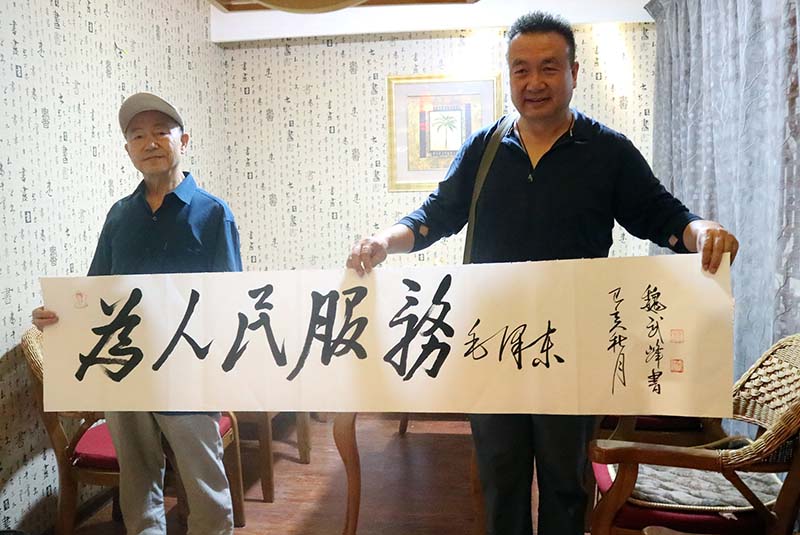 為人民服務 毛泽东
己亥秋月
魏武峰書